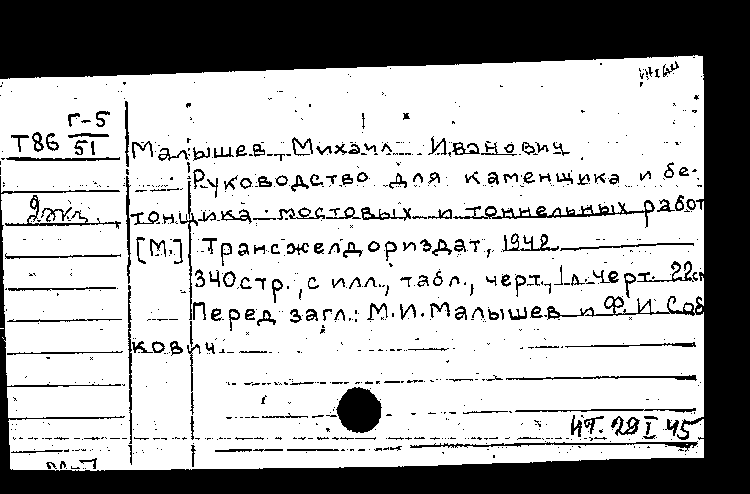 Г-5
Т86 51
Малышев, Михаил Иванович
Руководство для каменщика и бе-
2экз. тонщика мостовых и тоннельных работ
[М.] Трансжелдориздат, 1942.
340стр., с илл., табл., черт., 1 л. черт. 22см
Перед загл.: М.И.Малышев и Ф.И.Саб
кович.
29 I 45